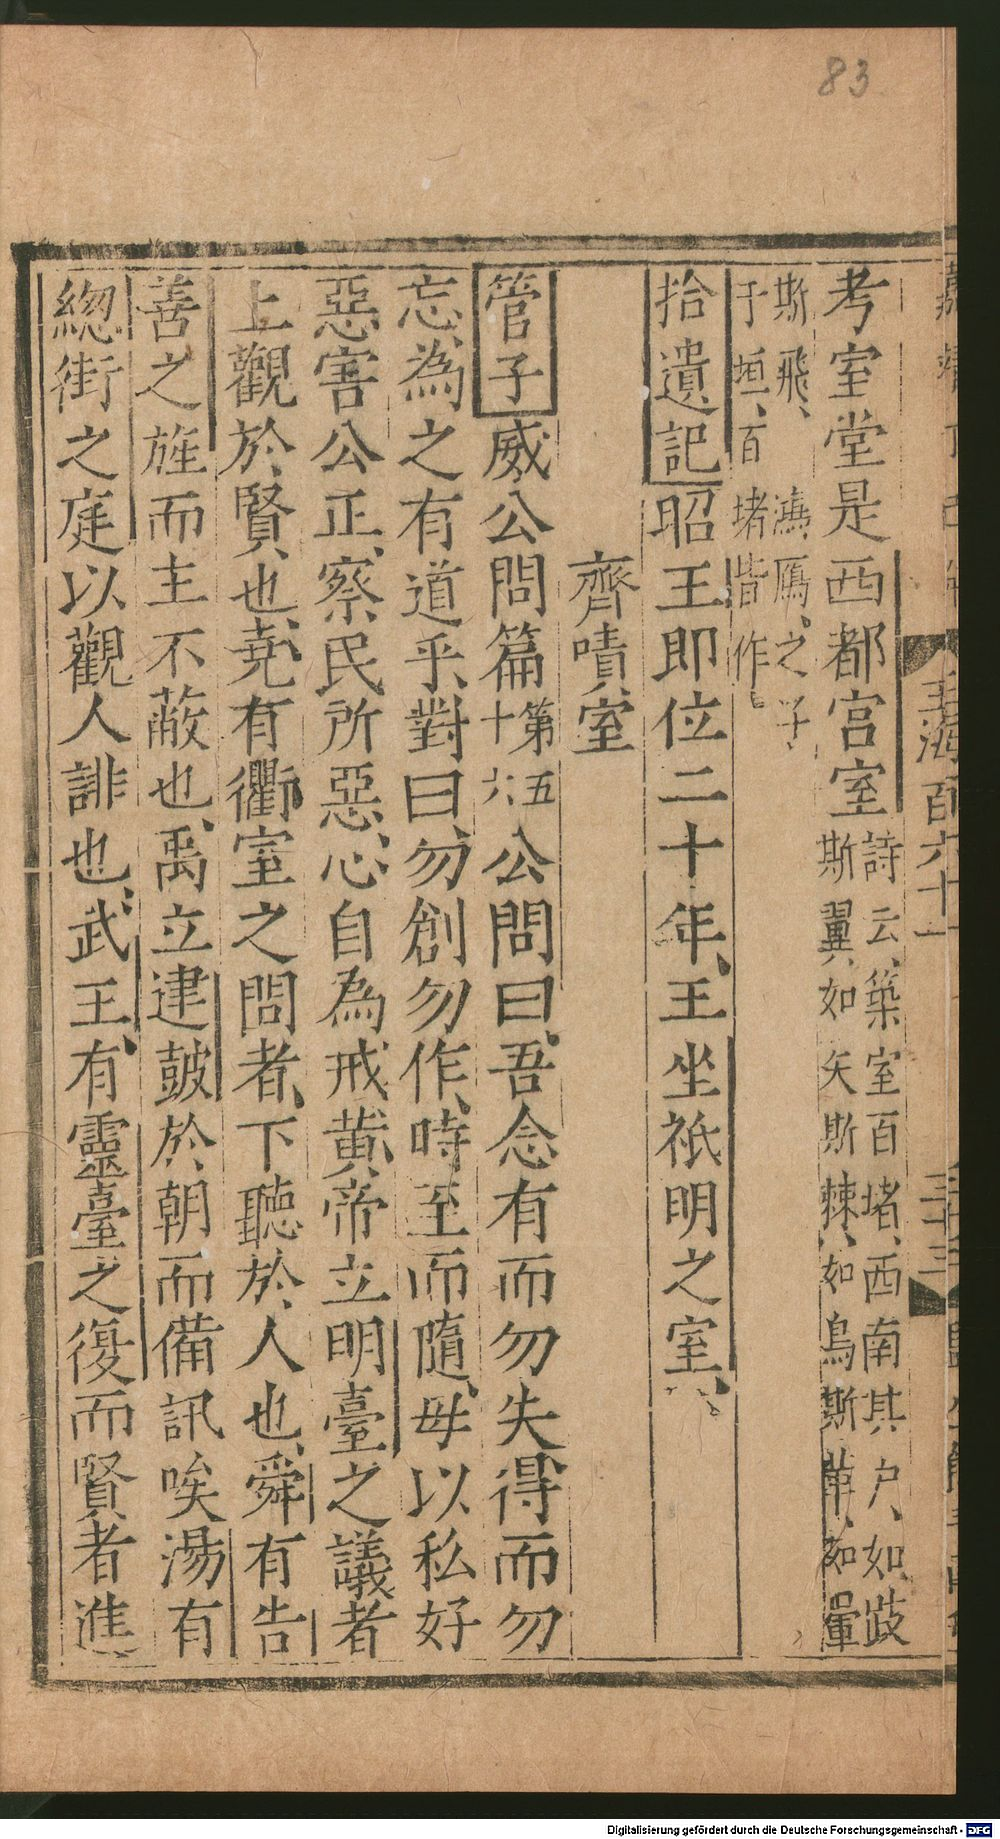 83
嘉靖丁巳年
玉海百六十一
三十三
考室堂是西都宮室詩云、築室百堵、西南其户、如跂
斯翼、如矢斯棘、如鳥斯革、如翬
斯飛、鴻鴈、之子
于垣、百堵皆作、
拾遺記昭王即位二十年、王坐祇明之室、
齊嘖室
管子威公問篇第五十六、公問曰、吾念有而勿失得而勿
忘、為之有道乎、對曰、勿創勿作、時至而隨、毋以私好
惡害公正、察民所惡、心自為戒黄帝立明臺之議者
上觀於賢、也、堯有衢室之問者、下聽於人也、舜有告
善之旌而主不蔽也、禹立建鼓於朝而備訊唉湯有
緫街之庭以觀人誹也、武王、有靈臺之復而賢者進、
Digitalisierung gefördert durch die Deutsche Forschungsgemeinschaft - DFG